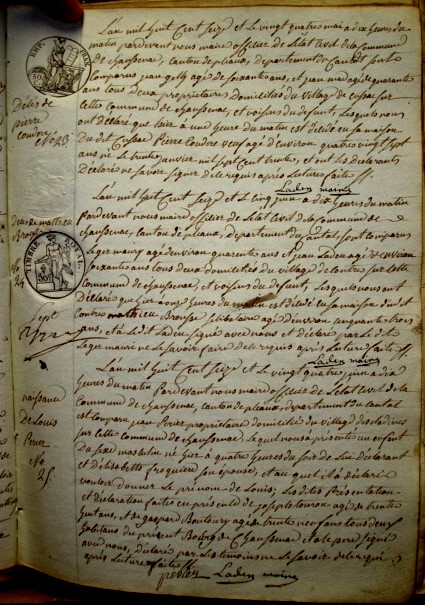 L'an mil huit cent seize et le vingt quatre mai a dix heures du
matin pardevant nous maire officier de l'état civil de la commune
de Chaussenac, canton de pleaux, departement du Cantal sont
comparus jean agé de soixante ans, et jean agé de quarante
ans tous deux propriétaires domiciliés du village de cussac sur
cette commune de Chaussenac, et voisins du defunt, lesquels nous
ont déclaré que hier a une heure du matin est décédé en sa maison
du dit Cussac Pierre Coudere veuf agé d'environ quatre vingt sept
ans né le trente janvier mil sept cent trente, et ont les déclarants
déclaré ne savoir signer de le requis après lecture faite
Laden maire
Décès de
pierre
coudere
N.o 23
L'an mil huit cent seize et le cinq juin a dix heures du matin
Pardevant nous maire officier de l'état civil de la commune de
Chaussenac, canton de pleaux, departement du Cantal, sont comparus
Leger agé d'environ quarante ans et jean Laden agé d'environ
soixante ans tous deux domiciliés du village de contres sur cette
commune de Chaussenac, et voisins du defunt, lesquels nous ont
déclaré que hier a onze heures du matin est décédé en sa maison du dit
Contres mathieu Brousse célibataire agé d'environ cinquante trois
ans, et a le dit Laden signé avec nous et déclaré par le dit
Leger ne le savoir faire de le requis après lecture faite
Laden maire
Décès de mathieu
Brousse
N.o
24
TIMBRE ROYAL
Sept
L'an mil huit cent seize et le vingt quatre juin a dix
heures du matin Pardevant nous maire officier de l'état civil de la
commune de Chaussenac, canton de pleaux, departement du cantal
est comparu jean Periez propriétaire domicilié du village des
sur cette commune de Chaussenac lequel nous a présenté un enfant
du sexe masculin né hier a quatre heures du soir de lui déclarant
et d'élisabeth son épouse, et auquel il a déclaré
vouloir donner le prénom de Louis; les dites présentation
et déclaration faites en présence de joseph agé de trente
huit ans, et de gaspard agé de trente neuf ans tous deux
habitans du présent Bourg de Chaussenac et a le pere signé
avec nous, déclaré par les temoins ne le savoir de le requis
après lecture faite
Laden maire
naissance
De Louis
Periez
N.o
25